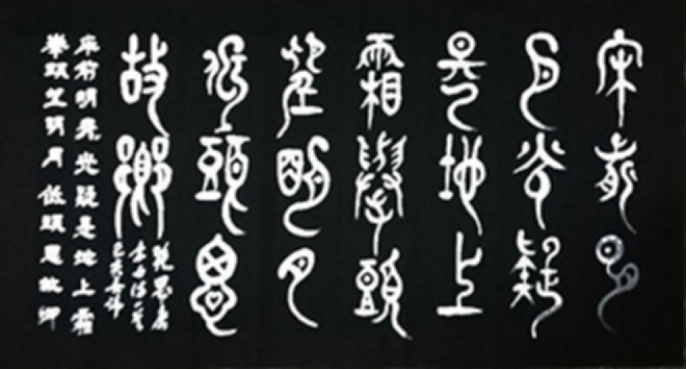 床前明
月光疑
是地上
霜舉頭
望明月
低頭思
故鄉
李白诗
床前明月光疑是地上霜
舉頭望明月低頭思故鄉